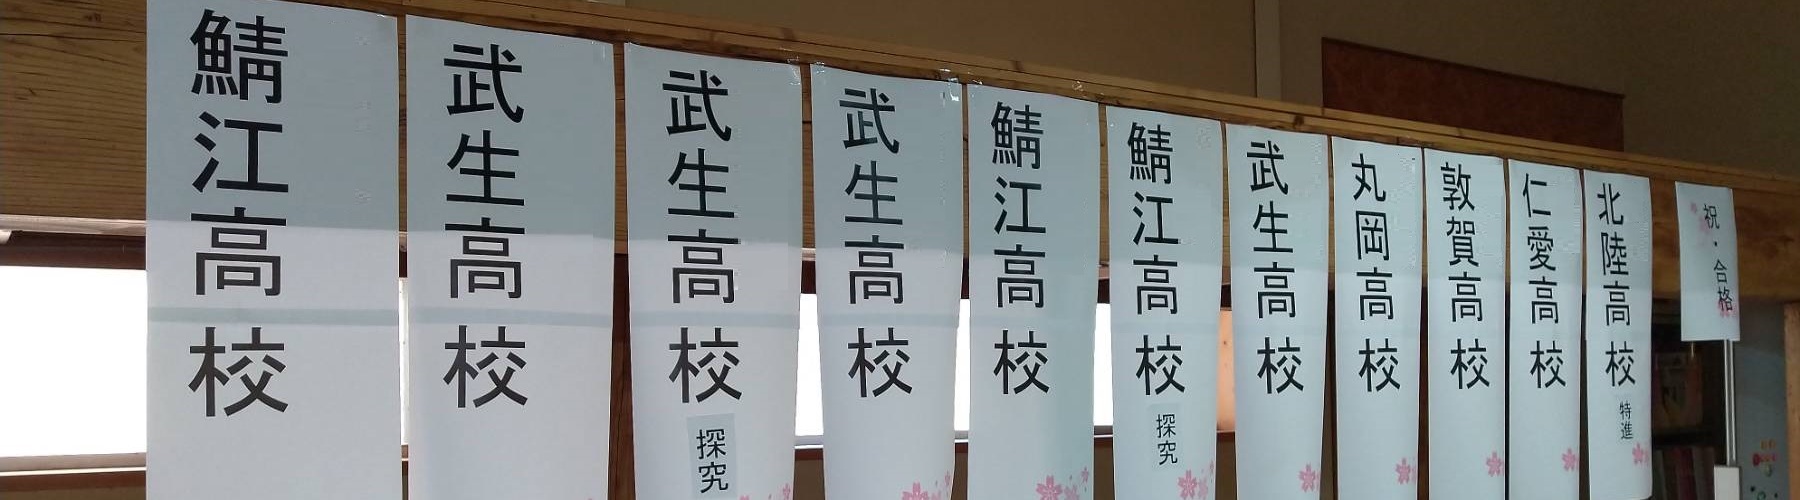 祝・合格
北陸高校 特進
仁愛高校
敦賀高校
丸岡高校
武生高校
鯖江高校 探究
鯖江高校
武生高校
武生高校 探究
武生高校
鯖江高校